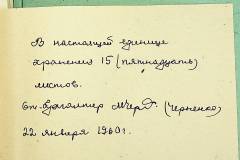 В настоящей единице
хранения 15 (пятнадцать)
листов.
Ст. бухгалтер (Черненко)
22 января 1960 г.